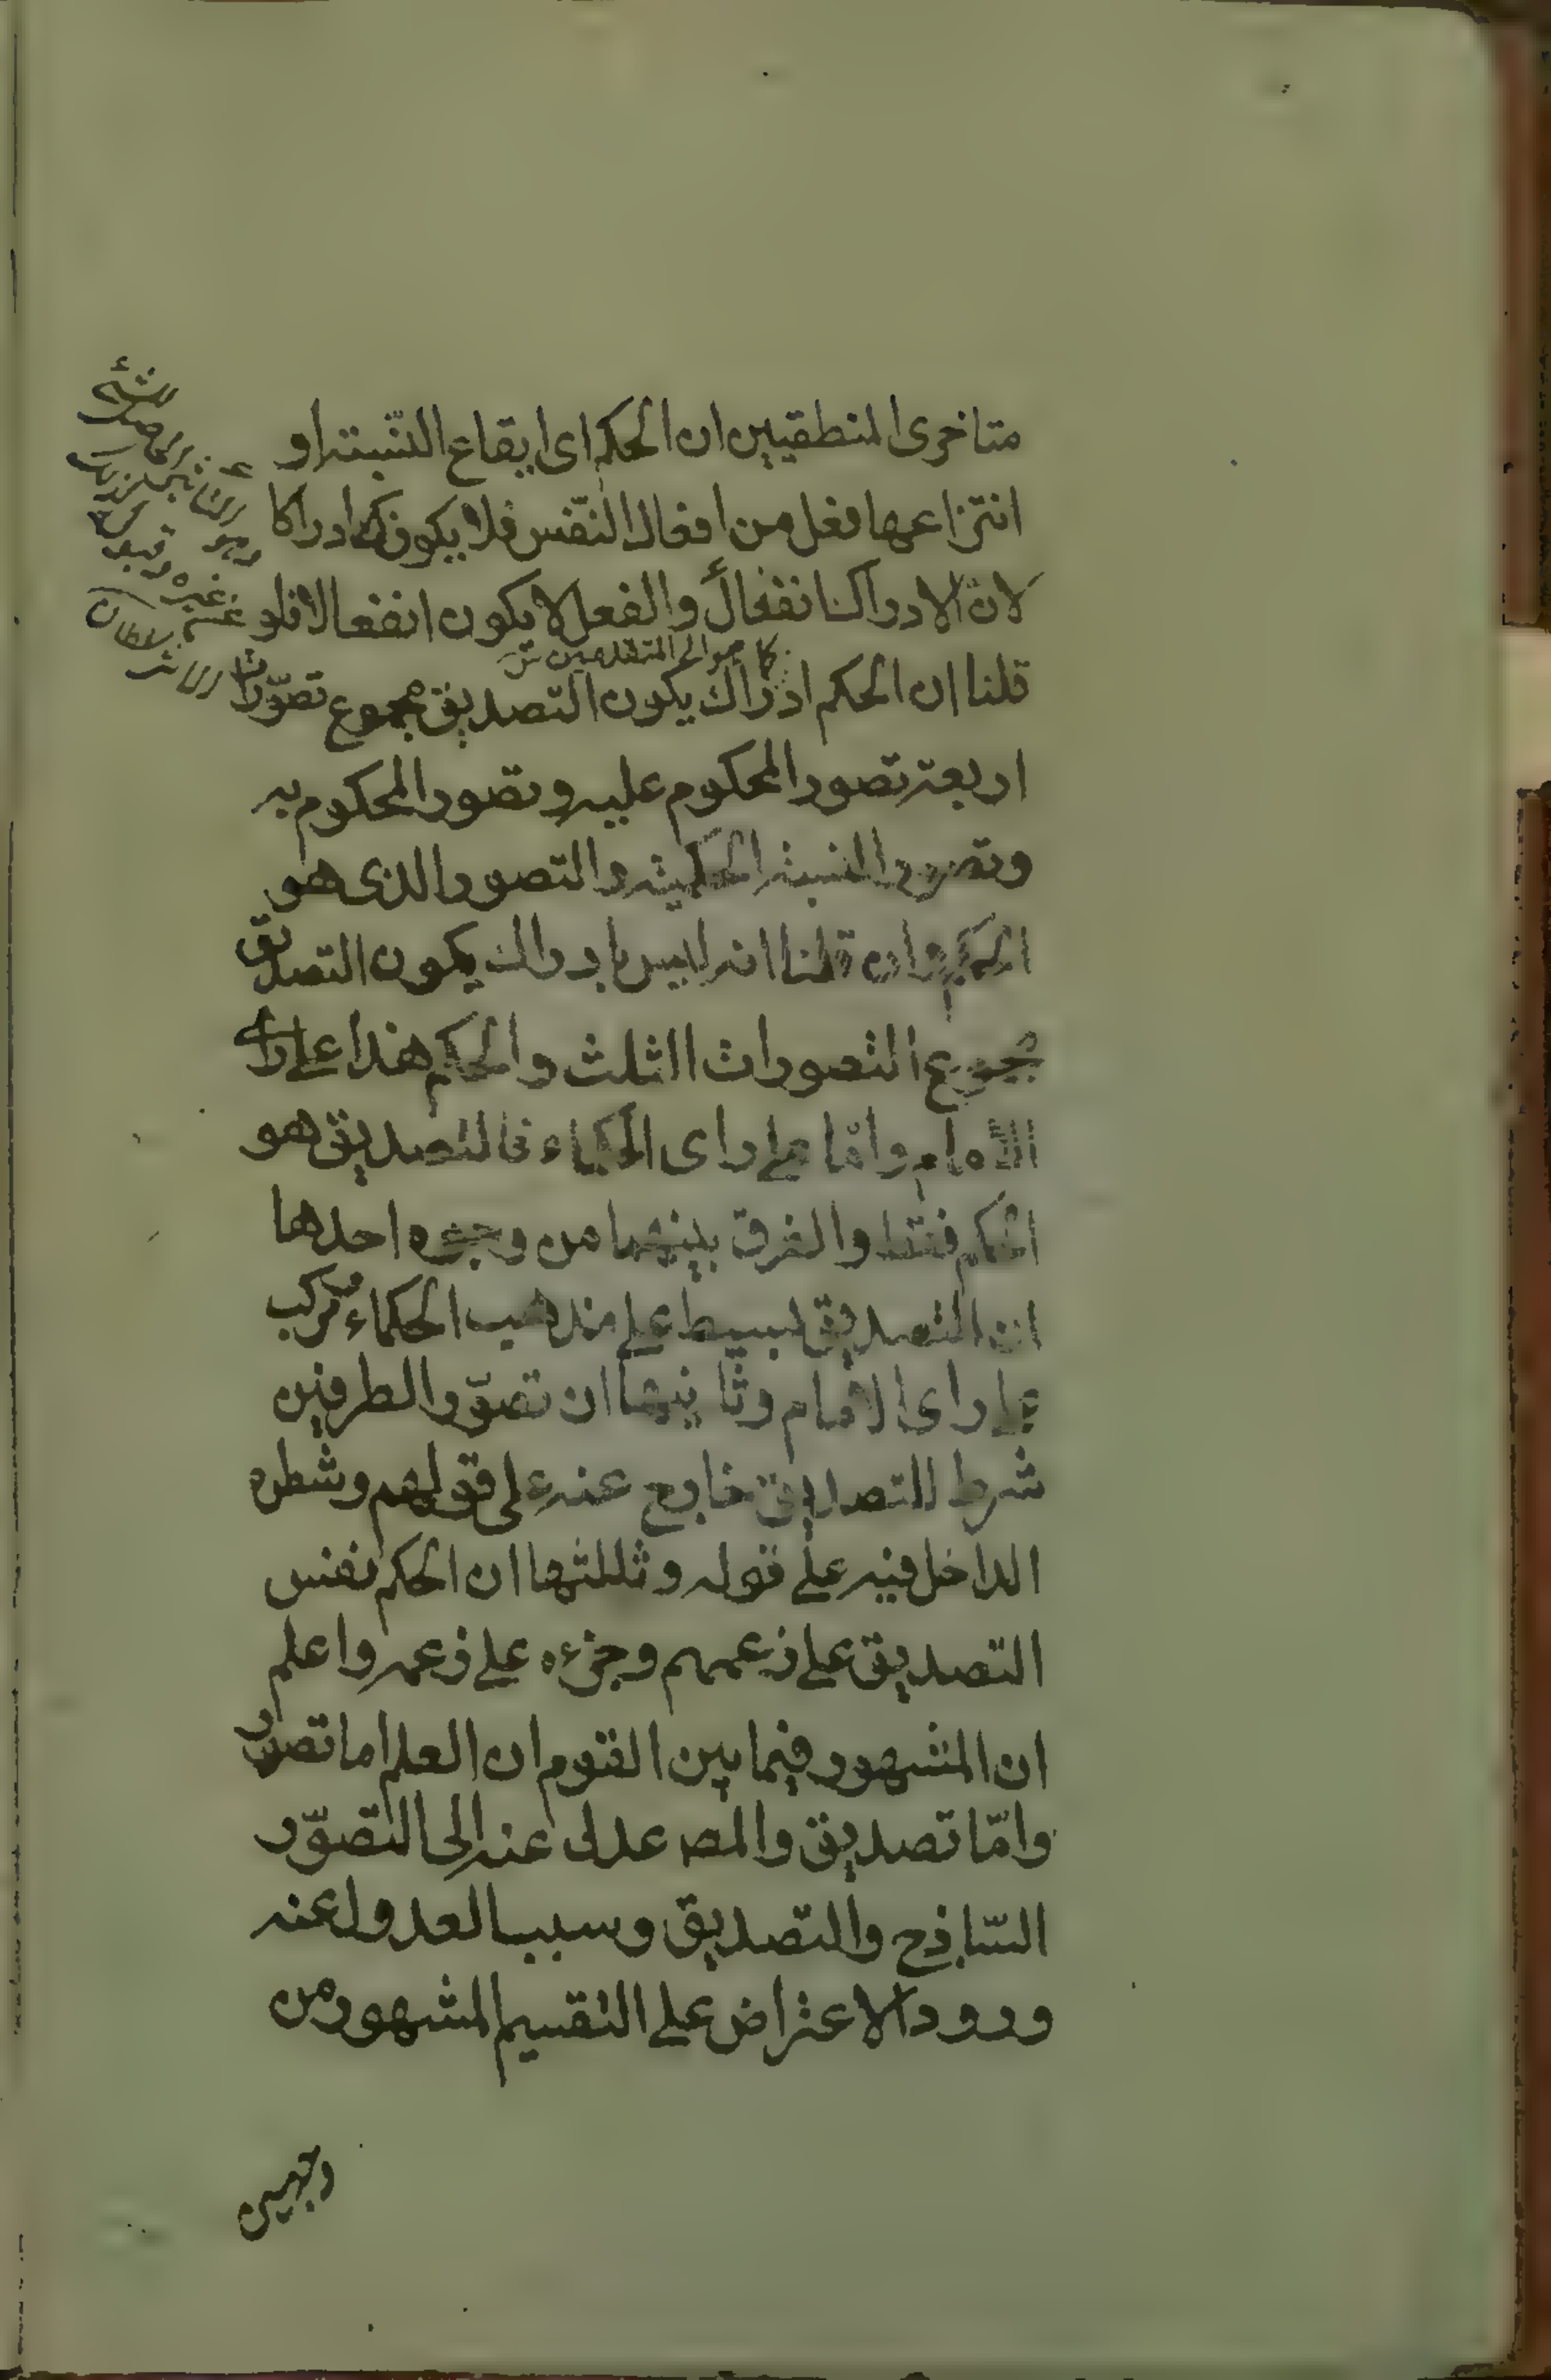 متاخرى المنطقيين ان الحكم اى ايقاع النّسبة او
انتزاعها فعل من افعال النّفس فلا يكون ادراكا
لانّ الادراك انفعال والفعل لا يكون انفعالا فلو
قلنا ان الحكم ادراك يكون التصديق مجموع تصوّرات
اربعة تصور المحكوم عليه وتصور المحكوم به
وتصور النسبة الحكمية والتصور الذى هو
الحكم وان قلنا انه ليس بادراك يكون التصديق
مجموع التصورات الثلث والحكم هذا على راى
الأمام وامّا على راى الحكماء فالتصديق هو
الحكم فقط والفرق بينهما من وجوه احدها
ان التصديق بسيط على مذهب الحكماء ومركب
على راى الامام وثانيها ان تصوّر الطرفين
شرط للتصديق خارج عنه على قولهم وشطره
الداخل فيه على قوله وثالثها ان الحكم نفس
التصديق على زعمهم وجزءه على زعمه واعلم
ان المشهور فيما بين القوم ان العلم اما تصور
وامّا تصديق والمصـ عدل عنه الى التصوّر
السّاذج والتصديق وسبب العدول عنه
ورود الاعتراض على التقسيم المشهور من
وجهين
كما هو المتقدمين
للشئ
الحاصل
غيره